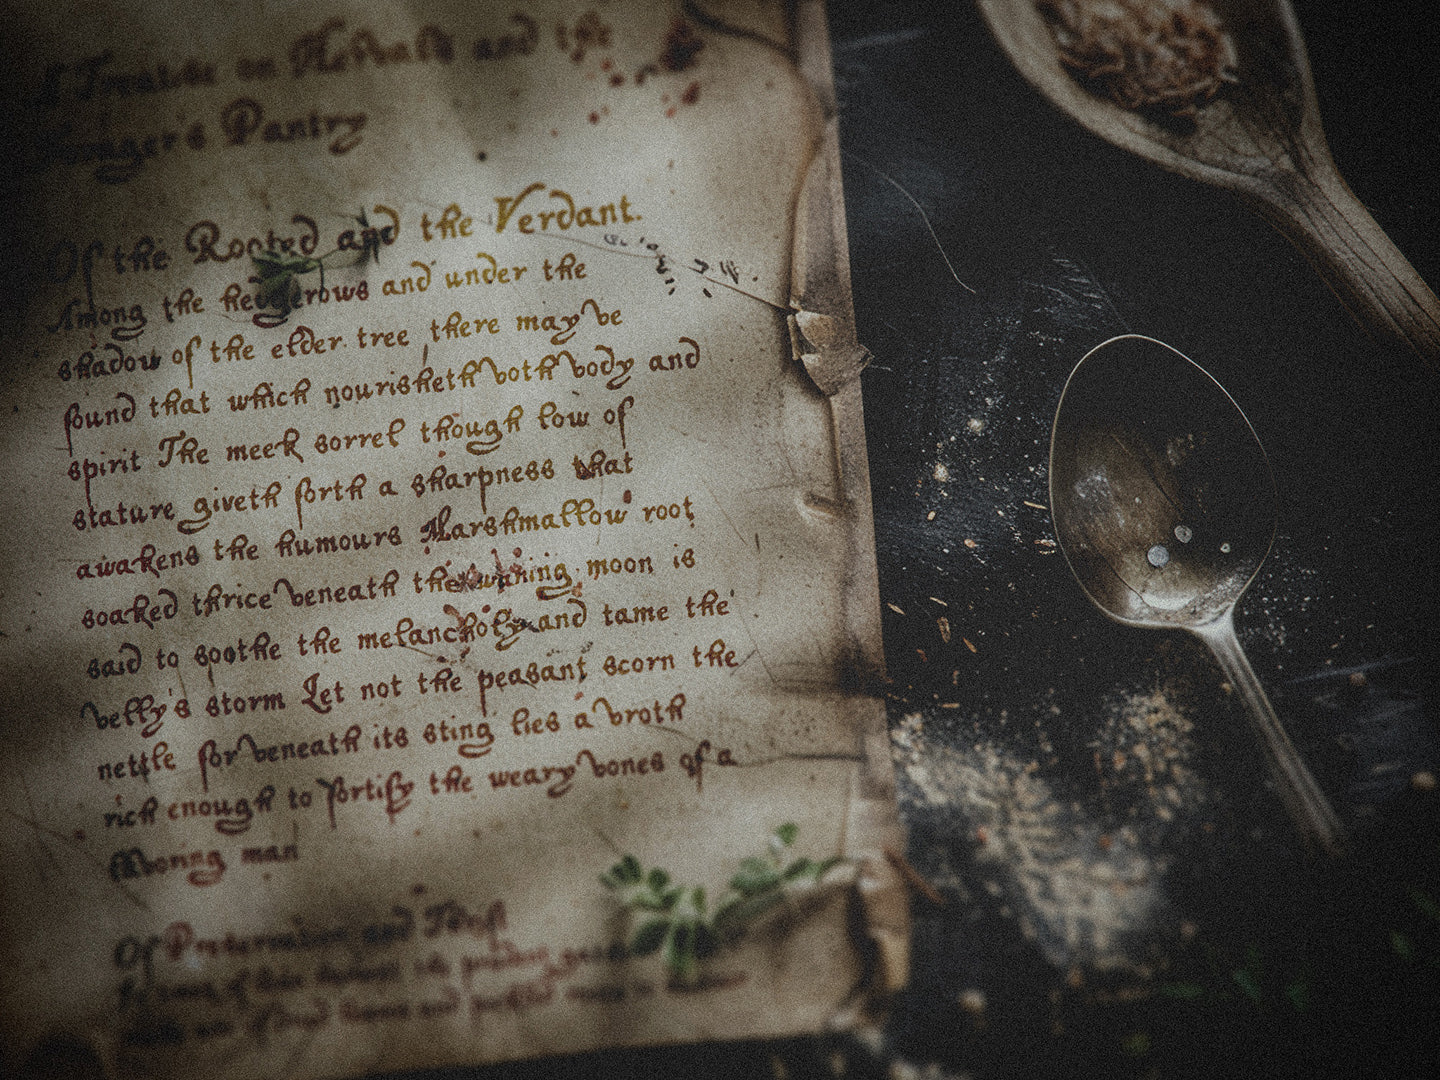 A Treatise on Herbals and the
Forager's Pantry
Of the Rooted and the Verdant.
Among the hedgerows and under the
shadow of the elder tree there may be
found that which nourisheth both body and
spirit The meek sorrel though low of
stature giveth forth a sharpness that
awakens the humours Marshmallow root
soaked thrice beneath the waning moon is
said to soothe the melancholy and tame the
belly's storm Let not the peasant scorn the
nettle for beneath its sting lies a broth
rich enough to fortify the weary bones of a
man
Of Preservation and Thrift